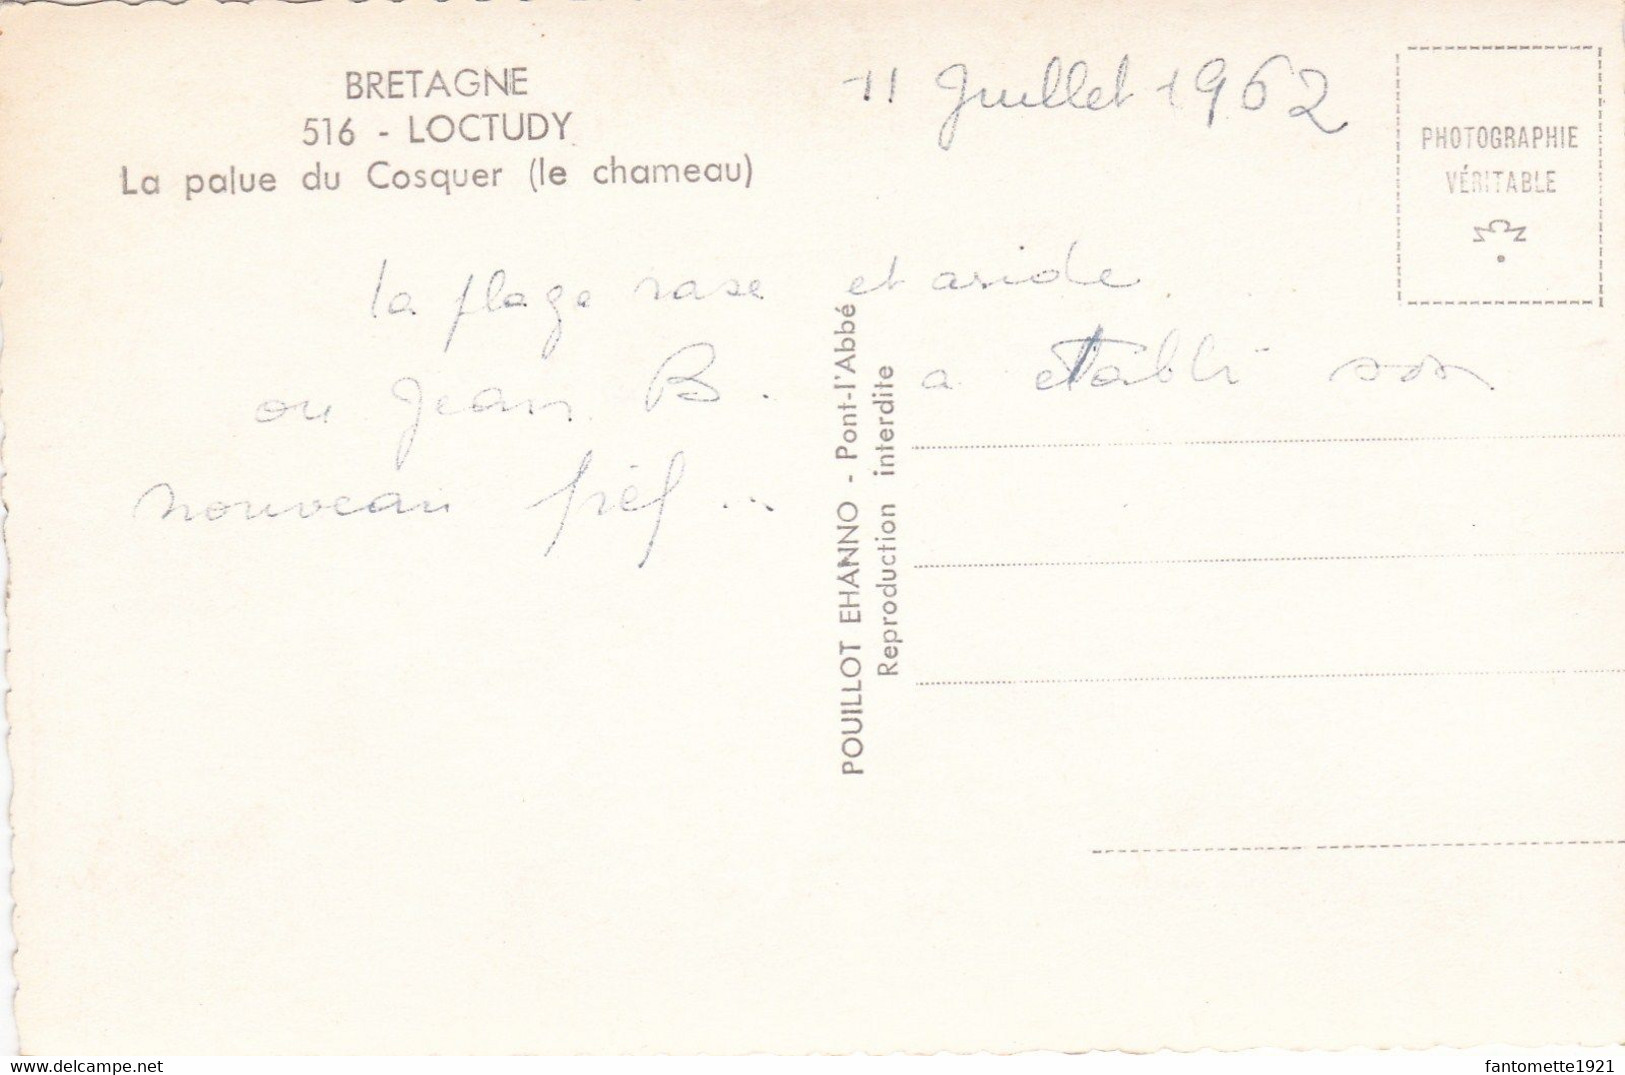 BRETAGNE
516 - LOCTUDY
La palue du Cosquer (le chameau)
11 Juillet 1962
PHOTOGRAPHIE
VÉRITABLE
la plage rase et aride
ou Jean B. a etabli son
nouveau fief ...
POUILLOT EHANNO - Pont-l'Abbé
Reproduction interdite
www.delcampe.net
fantomette1921